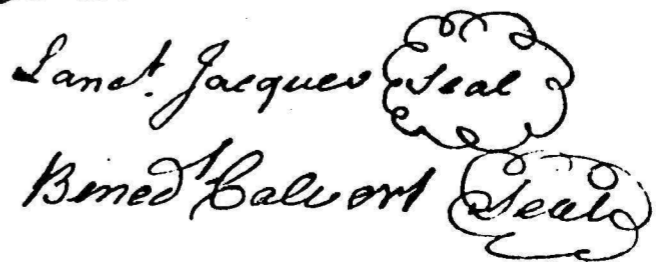 Lanct. Jacques Seal
Bened.t Calvert Seal